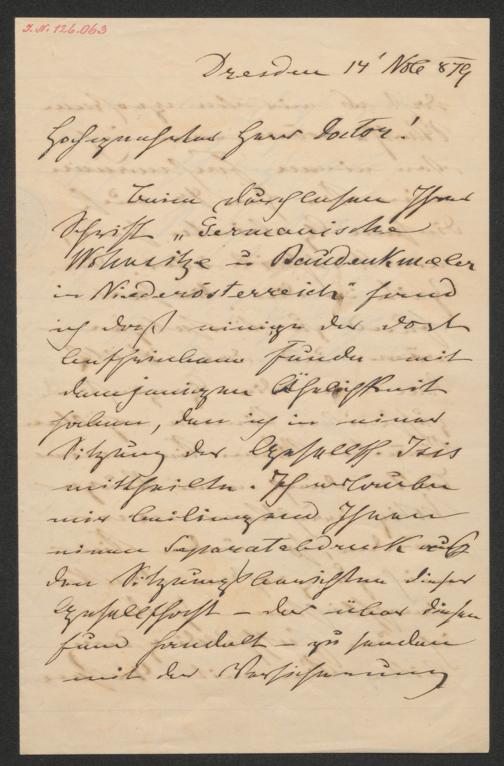 I. N. 126.063
Dresden 14' Nobr 879
Hochgeehrter Herr Doctor!
Beim Durchlesen Ihrer
Schrift „Germanische
Wohnsitze u Baudenkmæler
in Niederösterreich" fand
ich daß einige der dort
beschriebenen Funde mit
demjenigen Ähnlichkeit
haben, den ich in einer
Sitzung der Gesellsch. Isis
mittheilte. Ich erlaube
mir beiliegend Ihnen
einen Separatabdruck aus
den Sitzungsberichten dieser
Gesellschaft – der über diesen
Fund handelt – zu senden
mit der Versicherung